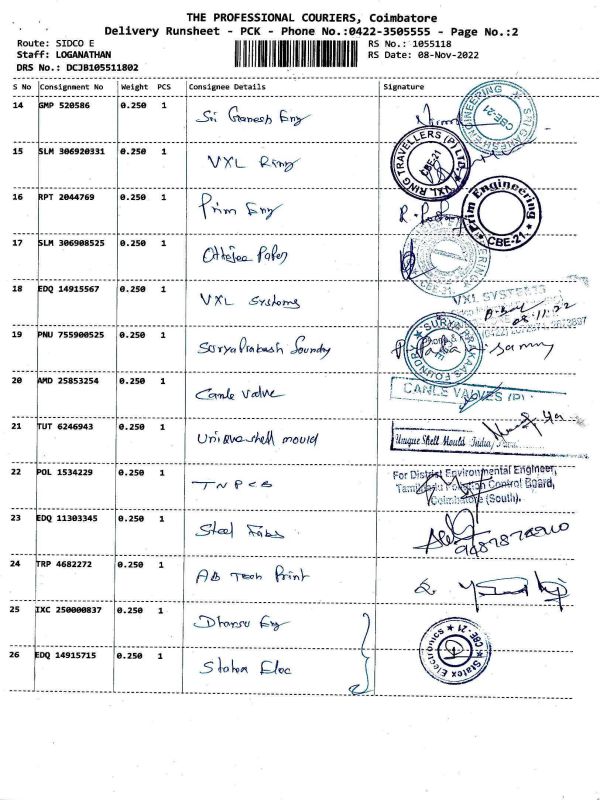 THE PROFESSIONAL COURIERS, Coimbatore
Delivery Runsheet - PCK - Phone No.:0422-3505555 - Page No.:2
Route: SIDCO E RS No.: 1055118
Staff: LOGANATHAN RS Date: 08-Nov-2022
DRS No.: DCJB105511802
S No Consignment No Weight PCS Consignee Details Signature
14 GMP 520586 0.250 1 Sri Ganesh Eng
SRI GANESH ENGINEERING CBE-21
15 SLM 306920331 0.250 1 VXL Ring
VXL RING TRAVELLERS (P) LTD. CBE-21
16 RPT 2044769 0.250 1 Prim Eng
Prim Engineering CBE-21
17 SLM 306908525 0.250 1
CBE-21
18 EDQ 14915567 0.250 1 VXL Systems
VXL SYSTEMS
08.11.22
19 PNU 755900525 0.250 1 Surya Prakash Foundry
SURYA PRAKAAS FOUNDRY
20 AMD 25853254 0.250 1 Canle Valve
CANLE VALVES (P)
21 TUT 6246943 0.250 1 Unique shell mould
Unique Shell Mould India
22 POL 1534229 0.250 1 TNPCB
For District Environmental Engineer,
Tamilnadu Pollution Control Board,
Coimbatore (South).
23 EDQ 11303345 0.250 1 Steel Fabs
24 TRP 4682272 0.250 1 AB Tech Print
25 IXC 250000837 0.250 1 Dhansu Eng
26 EDQ 14915715 0.250 1 Statex Elec
Statex Electronics CBE-21